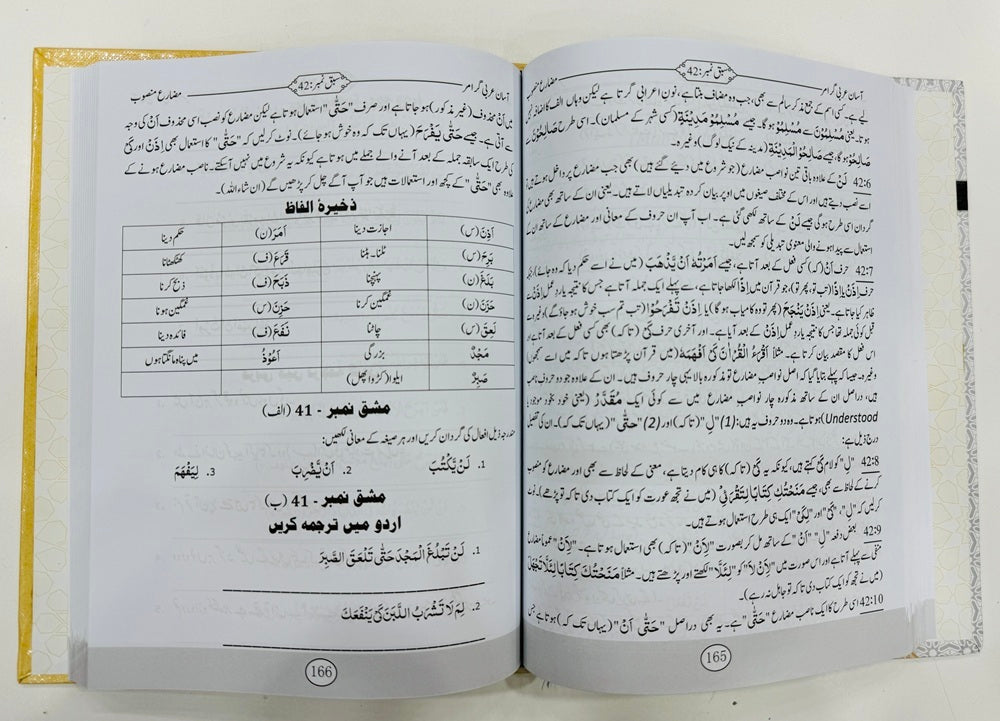 آسان عربی گرامر سبق نمبر:42 مضارع منصوب
لیے ہے۔ کسی اسم کے جمع مذکر سالم سے بھی، جب وہ مضاف بنتا ہے، نونِ اعرابی گرتا ہے لیکن وہاں الف کا اضافہ نہیں
ہوتا۔ یعنی مُسْلِمُوْنَ سے مُسْلِمُوْ ہوگا۔ جیسے مُسْلِمُوْ مَدِیْنَۃٍ (کسی شہر کے مسلمان)۔ اسی طرح صَالِحُوْنَ سے
صَالِحُوْ ہوگا، جیسے صَالِحُو الْمَدِیْنَۃِ (مدینہ کے نیک لوگ) وغیرہ۔
42:6 لَنْ کے علاوہ باقی تین نواصبِ مضارع (جو شروع میں دیئے گئے ہیں) بھی جب مضارع پر داخل ہوتے ہیں
اسے نصب دیتے ہیں اور اس کے مختلف صیغوں میں اوپر بیان کردہ تبدیلیاں لاتے ہیں۔ یعنی ان کے ساتھ بھی مضارع
گردان اسی طرح ہوگی جیسے لَنْ کے ساتھ لکھی گئی ہے۔ اب آپ ان حروف کے معانی اور مضارع کے ساتھ ان
استعمال سے پیدا ہونے والی معنوی تبدیلی کو سمجھ لیں۔
42:7 حرف اَنْ (کہ) کسی فعل کے بعد آتا ہے، جیسے اَمَرْتُہٗ اَنْ یَّذْھَبَ (میں نے اسے حکم دیا کہ وہ جائے)
حرف اِذَنْ یا اِذًا (تب تو، پھر تو)، جو قرآن میں اِذًا لکھا جاتا ہے، سے پہلے ایک جملہ آتا ہے جس کا نتیجہ یا ردِ عمل اِذَنْ سے
ظاہر کیا جاتا ہے۔ یعنی اِذَنْ یَنْجَحَ (پھر تو وہ کامیاب ہوگا) یا اِذَنْ تَفْرَحُوْا (تب تم سب خوش ہو جاؤ گے) وغیرہ
قبل کوئی جملہ تھا جس کا نتیجہ یا ردِ عمل اِذَنْ کے بعد آیا ہے۔ اور آخری حرف کَیْ (تاکہ) بھی کسی فعل کے بعد آتا ہے اور
اس فعل کا مقصد بیان کرتا ہے۔ مثلًا اَقْرَءُ الْقُرْاٰنَ کَیْ اَفْھَمَہٗ (میں قرآن پڑھتا ہوں تاکہ میں اسے سمجھوں)
وغیرہ۔ جیسا کہ پہلے بتایا گیا کہ اصل نواصبِ مضارع تو مذکورہ بالا یہی چار حروف ہیں۔ ان کے علاوہ جو دو حروف ناصب
ہیں، دراصل ان کے ساتھ مذکورہ چار نواصبِ مضارع میں سے کوئی ایک مُقَدَّرْ (یعنی خود بخود موجود یا
Understood) ہوتا ہے۔ وہ دو حروف یہ ہیں: (1) "لِ" (تاکہ) اور (2) "حَتّٰی" (یہاں تک کہ)۔ ان کی تفصیل
درج ذیل ہے:
42:8 "لِ" کو لامِ کَیْ کہتے ہیں، کیونکہ یہ کَیْ (تاکہ) کا ہی کام دیتا ہے، معنی کے لحاظ سے بھی اور مضارع کو منصوب
کرنے کے لحاظ سے بھی، جیسے مَنَحْتُکِ کِتَابًا لِتَقْرَئِیْ (میں نے تجھ عورت کو ایک کتاب دی تاکہ تو پڑھے)۔ نوٹ
کرلیں کہ "لِ"، "کَیْ" اور "لِکَیْ" ایک ہی طرح استعمال ہوتے ہیں۔
42:9 بعض دفعہ "لِ"، "اَنْ" کے ساتھ مل کر بصورت "لِاَنْ" (تاکہ) بھی استعمال ہوتا ہے۔ "لِاَنْ" عموماً مضارع
منفی سے پہلے آتا ہے اور اس صورت میں "لِاَنْ لَا" کو "لِئَلَّا" لکھتے اور پڑھتے ہیں۔ مثلًا مَنَحْتُکَ کِتَابًا لِئَلَّا تَجْھَلَ
(میں نے تجھ کو ایک کتاب دی تاکہ تو جاہل نہ رہے)۔
42:10 اسی طرح کا ایک ناصبِ مضارع "حَتّٰی" ہے۔ یہ بھی دراصل "حَتّٰی اَنْ" (یہاں تک کہ) ہوتا ہے جس
165
آسان عربی گرامر سبق نمبر:42 مضارع منصوب
میں اَنْ محذوف (غیر مذکور) ہو جاتا ہے اور صرف "حَتّٰی" استعمال ہوتا ہے لیکن مضارع کو نصب اسی محذوف اَنْ کی وجہ
سے آتی ہے۔ جیسے حَتّٰی یَفْرَحَ (یہاں تک کہ وہ خوش ہو جائے)۔ نوٹ کرلیں کہ "حَتّٰی" کا استعمال بھی اِذَنْ اور کَیْ
کی طرح ایک سابقہ جملہ کے بعد آنے والے جملے میں ہوتا ہے کیونکہ یہ شروع میں نہیں آسکتے۔ ناصب مضارع ہونے کے
علاوہ بھی "حَتّٰی" کے کچھ اور استعمالات ہیں جو آپ آگے چل کر پڑھیں گے (ان شاء اللہ)۔
ذخیرۂ الفاظ
اَذِنَ (س) اجازت دینا اَمَرَ (ن) حکم دینا
بَرِحَ (س) ٹلنا۔ ہٹنا قَرَعَ (ف) کھٹکھٹانا
بَلَغَ (ن) پہنچنا ذَبَحَ (ف) ذبح کرنا
حَزَنَ (ن) غمگین کرنا حَزِنَ (س) غمگین ہونا
لَعِقَ (س) چاٹنا نَفَعَ (ف) فائدہ دینا
مَجْدٌ بزرگی اَعُوْذُ میں پناہ مانگتا ہوں
صَبِرٌ ایلوا (کڑوا پھل)
مشق نمبر - 41 (الف)
مندرجہ ذیل افعال کی گردان کریں اور ہر صیغہ کے معانی لکھیں:
1. لَنْ یَّکْتُبَ 2. اَنْ یَّضْرِبَ 3. لِیَفْھَمَ
مشق نمبر - 41 (ب)
اردو میں ترجمہ کریں
1. لَنْ تَبْلُغَ الْمَجْدَ حَتّٰی تَلْعَقَ الصَّبِرَ
2. لِمَ لَا تَشْرَبُ اللَّبَنَ کَیْ یَنْفَعَکَ
166